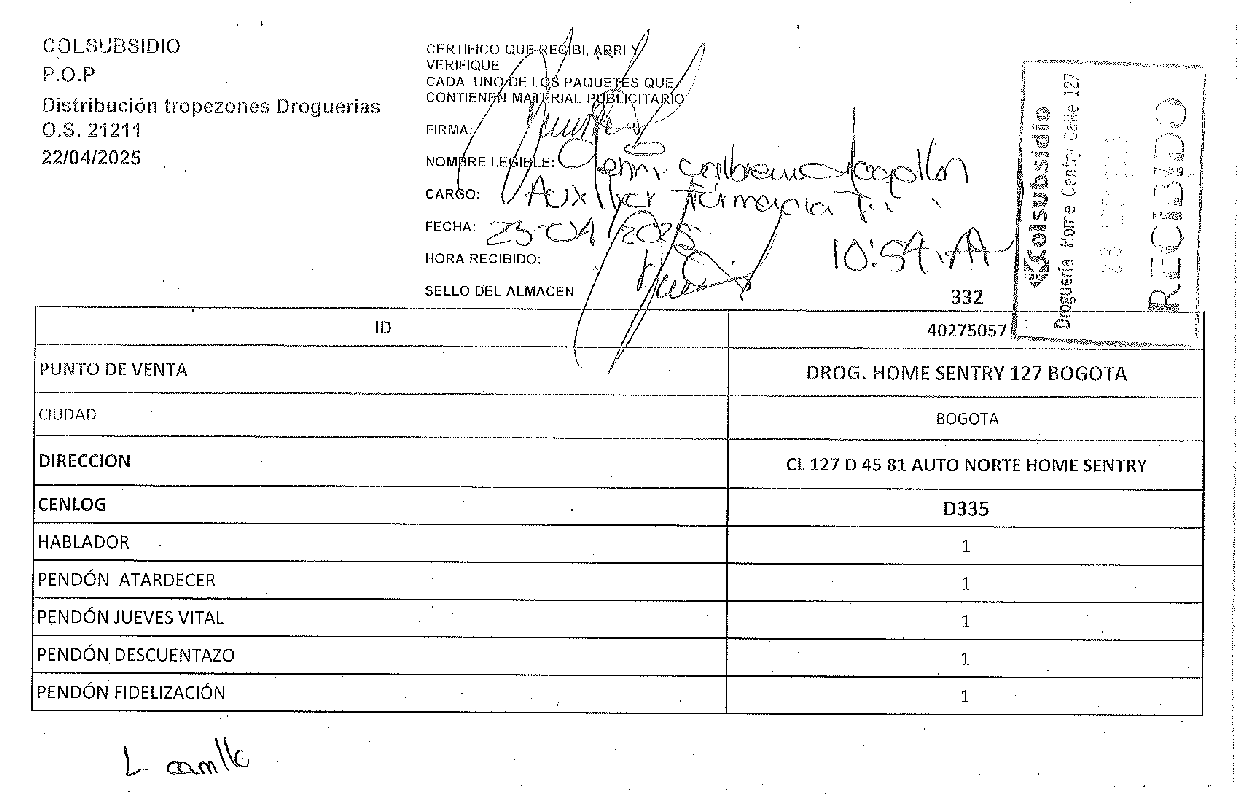 COLSUBSIDIO
P.O.P
Distribución tropezones Droguerias
O.S. 21211
22/04/2025
CERTIFICO QUE RECIBI, ABRI Y
VERIFIQUE
CADA UNO DE LOS PAQUETES QUE
CONTIENEN MATERIAL PUBLICITARIO
FIRMA:
NOMBRE LEGIBLE:
CARGO: Auxiliar Farmacia
FECHA: 23-04/2025
HORA RECIBIDO: 10:54
SELLO DEL ALMACEN
332
Colsubsidio
Droguería Home Centry Calle 127
RECIBIDO
ID 40275057
PUNTO DE VENTA DROG. HOME SENTRY 127 BOGOTA
CIUDAD BOGOTA
DIRECCION CL 127 D 45 81 AUTO NORTE HOME SENTRY
CENLOG D335
HABLADOR 1
PENDÓN ATARDECER 1
PENDÓN JUEVES VITAL 1
PENDÓN DESCUENTAZO 1
PENDÓN FIDELIZACIÓN 1